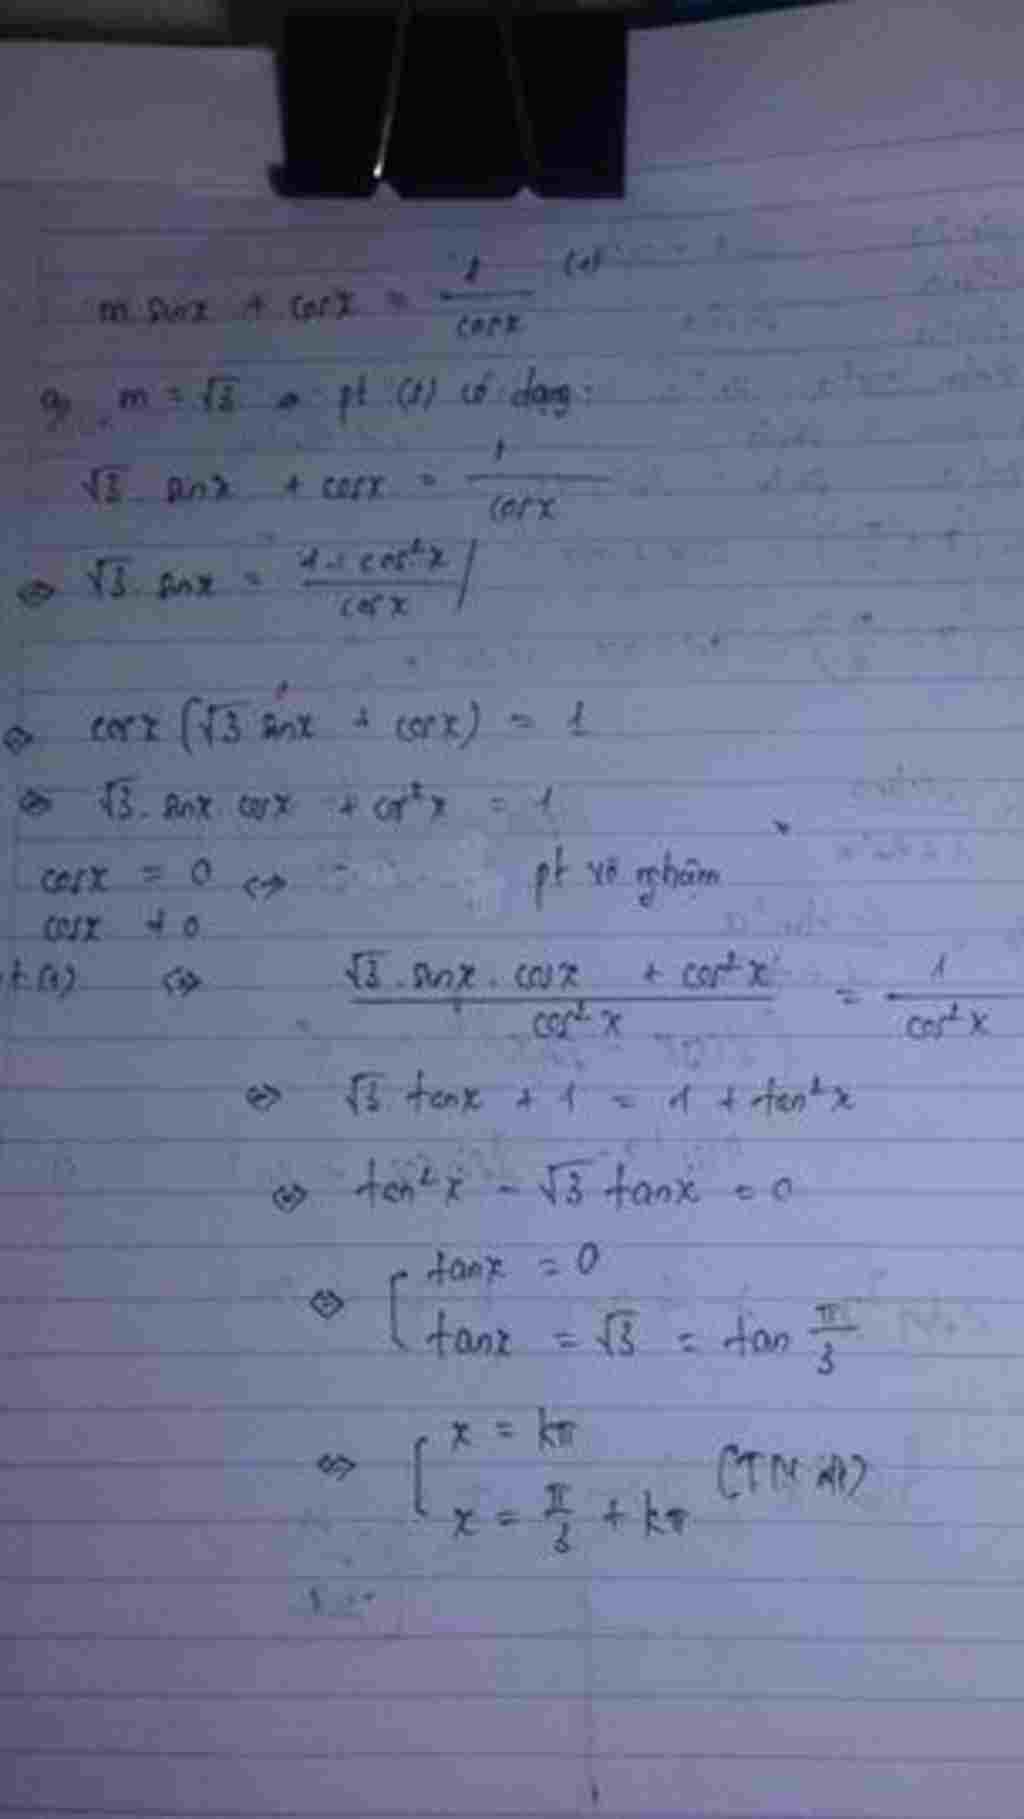 m sinx + cosx = 1/cosx (1)
a) m = √3 → pt (1) có dạng:
√3. sinx + cosx = 1/cosx
⇔ √3. sinx = (1 - cos²x)/cosx
⇔ cosx (√3 sinx + cosx) = 1
⇔ √3. sinx cosx + cos²x = 1
cosx = 0 ⇔ pt vô nghiệm
cosx ≠ 0
(1) ⇔ (√3. sinx. cosx + cos²x)/cos²x = 1/cos²x
⇔ √3 tanx + 1 = 1 + tan²x
⇔ tan²x - √3 tanx = 0
⇔ [ tanx = 0
tanx = √3 = tan π/3
⇔ [ x = kπ
x = π/3 + kπ (TM đk)